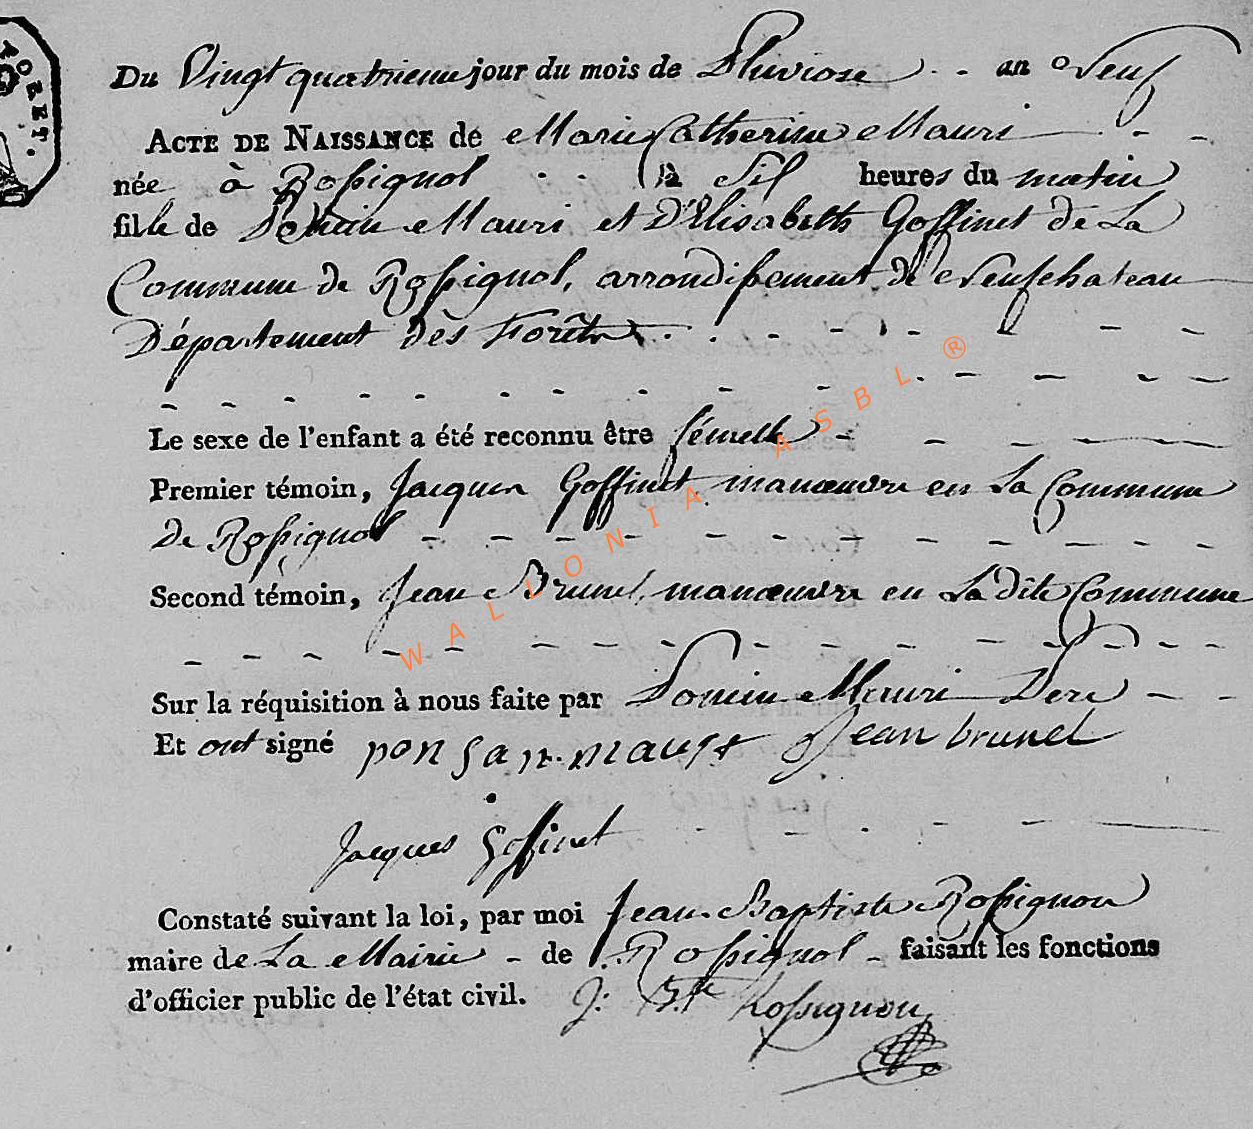 FORET.
Du Vingt quatrieme jour du mois de Pluviose an Neuf
ACTE DE NAISSANCE de Marie Catherine Mauri
née à Rossignol à Six heures du matin
fille de Poncin Mauri et D'Elisabeth Goffinet de La
Commune de Rossignol, arrondissement de Neufchateau
Département des Forêts
Le sexe de l'enfant a été reconnu être fémelle
Premier témoin, Jacques Goffinet manœuvre en La Commune
de Rossignol
Second témoin, Jean Brunel, manœuvre en La dite Commune
Sur la réquisition à nous faite par Poncin Mauri Pere
Et ont signé Jean brunel
Jacques Goffinet
Constaté suivant la loi, par moi Jean Baptiste Rossignon
maire de La Mairie de Rossignol faisant les fonctions
d'officier public de l'état civil. J: Bte Rossignon
WALLONIA ASBL ®